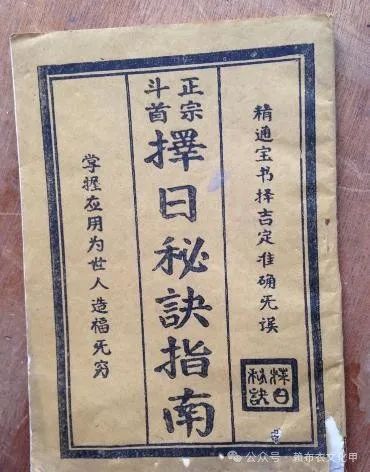 精通宝书择吉定准确无误
择日
秘诀
正宗
斗首
擇日秘訣指南
掌握应用为世人造福无穷
公众号·赖布衣文化甲